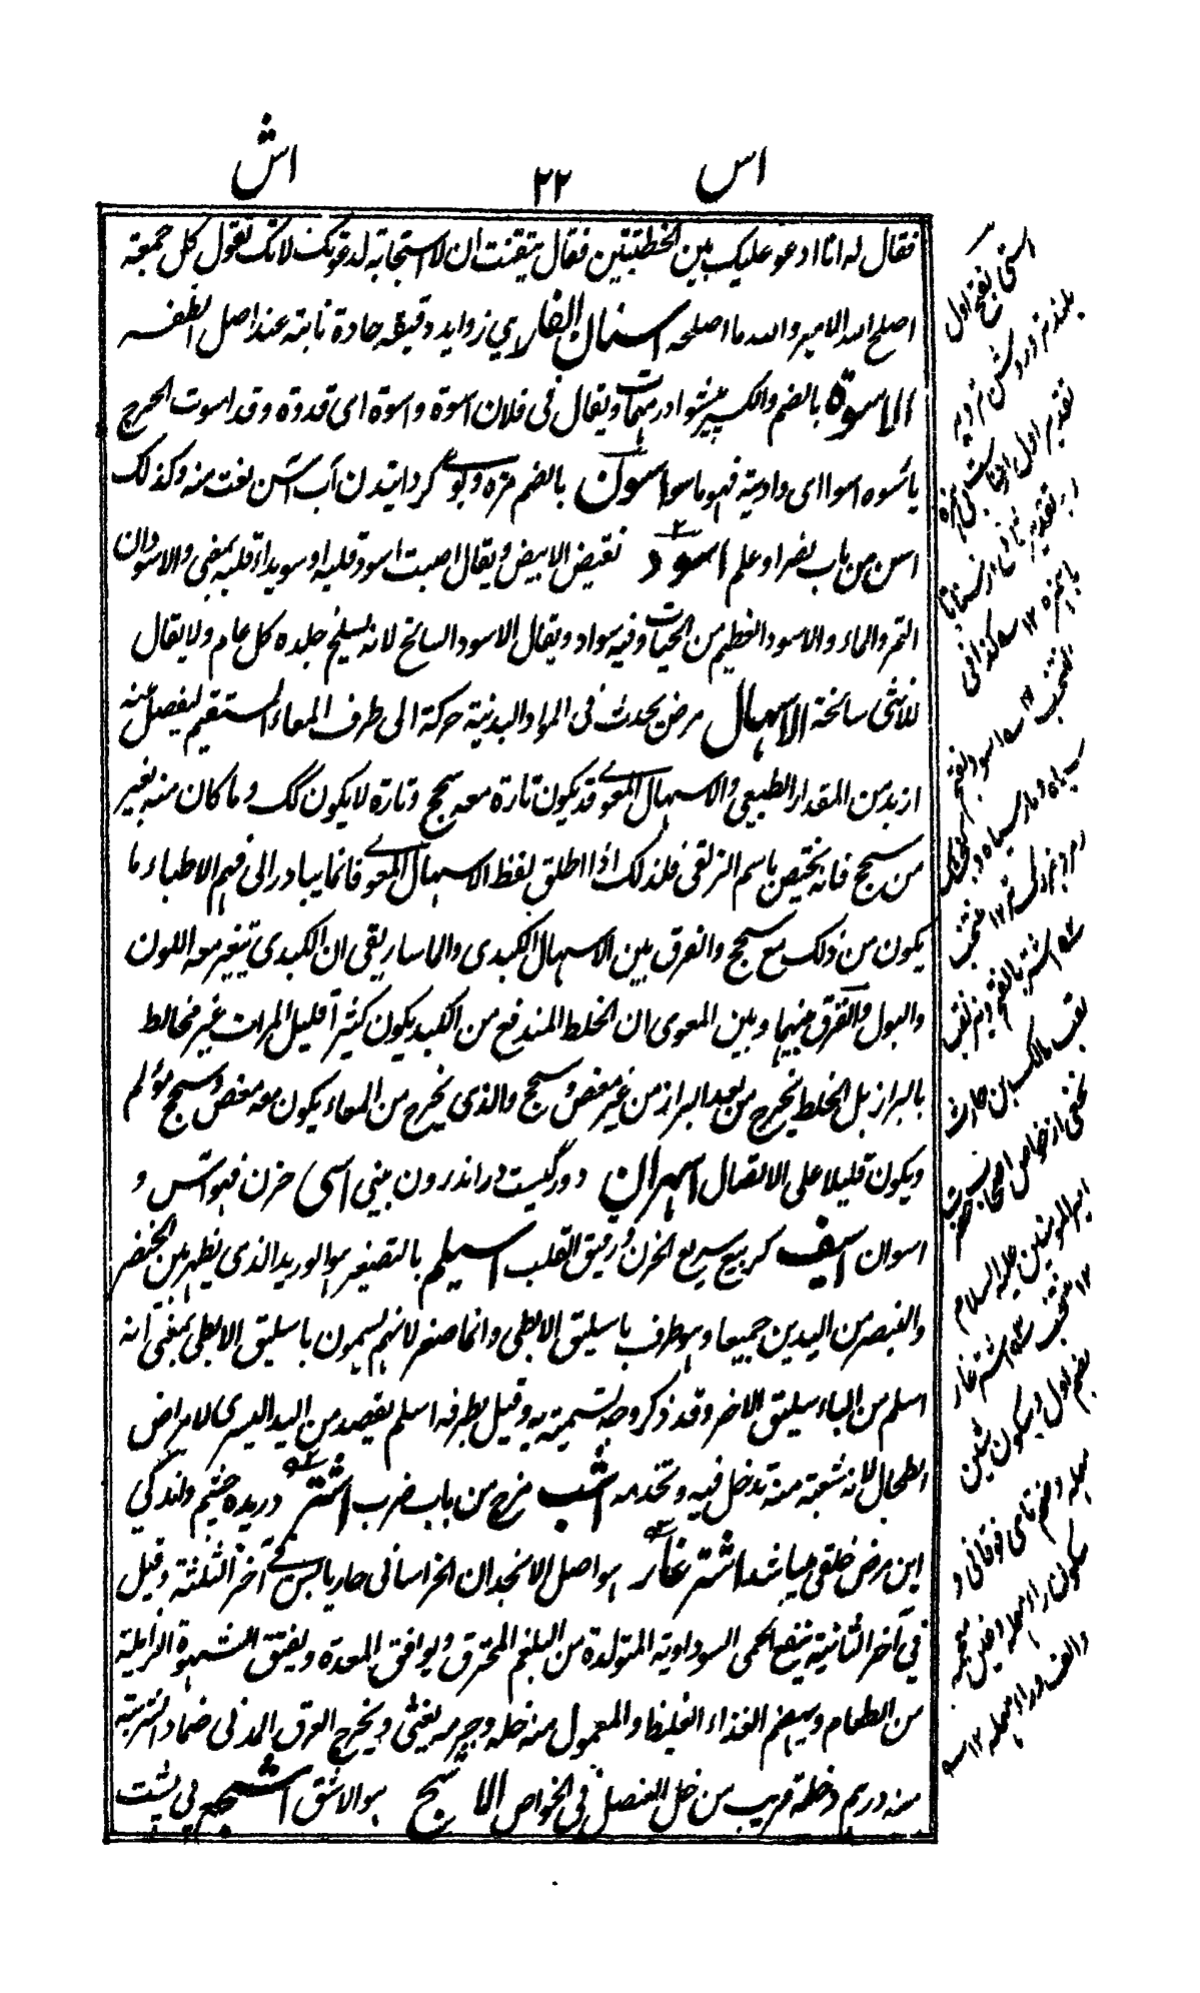 اس ٢٢ اش
فقال له انا ادعو عليك بين الخطبتين فقال تيقنت ان لا استجابة لدعوتك لانك تقول كل جمعة
اصلح الله الامير والله ما اصلحه اسنان الفار هي زوايد دقيقة حادة نابتة عند اصل الظفر
الاسوة بالضم والكسر پیشوا در مهمات ويقال لى فى فلان اسوة واسوة اى قدوة وقد اسوت الجرح
يأسوه اسوا اى داويته فهو ماسو اسون بالضم مزه و بوى گردانیدن آب آسن نعت منه وكذلك
اسن من باب نصر او علم اسود نقيض الابيض ويقال اصبت اسود قلبه او سويداء قلبه بمعنى والاسودان
التمر والماء والاسود العظيم من الحيات وفيه سواد ويقال الاسود السالخ لانه يسلخ جلده كل عام ولا يقال
للانثى سالخة الاسهال مرض يحدث فى المواد البدنية حركة الى طرف المعاء المستقيم ليفصل عنه
ازيد من المقدار الطبيعى والاسهال المعوى قد يكون تارة معه سحج وتارة لا يكون كك وما كان منه بغير
من سحج فانه يختص باسم الزلقى فلذلك اذا اطلق لفظ الاسهال المعوى فانما يبادر الى فهم الاطباء ما
يكون من ذلك مع سحج والفرق بين الاسهال الكبدى والماساريقى ان الكبدى تتغير معه اللون
والبول والتفرق بينهما وبين المعوى ان الخلط المندفع من الكبد يكون كثيرا قليل المرات غير مخالط
بالبراز بل الخلط يخرج من بعد البراز من غير مغص وسحج والذى يخرج من المعاء يكون معه مغص وسحج مؤلم
ويكون قليلا على الاتصال اسهران دو رگیست در اندرون بینی اسى حزن فهو آس و
اسوان اسيف كربيع سريع الحزن ورقيق القلب اسيلم بالتصغير هو الوريد الذى يظهر بين الخنصر
والبنصر من اليدين جميعا وهو طرف باسليق الابطى وانما صغر لانهم يسمون باسليق الابطى بمعنى انه
اسلم من الباسليق الاخر وقد ذكر وجه تسميته به وقيل بطرفه اسلم يفصد من اليد اليسرى لامراض
الطحال لانه شعبة منه تدخل فيه وتخدمه اشب مزج من باب ضرب اشتر دریده چشم واندكى
این مرض خلقى میباشد اشتر غار هو اصل الانجدان الخراسانى حار يابس فى آخر الثلثة وقيل
فى آخر الثانية ينفع الحمى السوداوية المتولدة من البلغم المحترق ويوافق المعدة ويفتق الشهوة الزايلة
من الطعام ويهضم الغذاء الغليظ والمعمول منه خله وجرمه يغثى ويخرج العرق المدنى ضمادا شربته
منه درهم وخله قريب من خل العنصل فى الخواص الاشج هو الاشق اشجع پى پشت
بفتح اول
تقديم اول
مالك بن حارث
نخعى از خاص اصحاب حضرت
امير المومنين عليه السلام
١٢ منتخب اشتر غار
بضم اول وسكون شين
معجمه وضم تاى فوقانى و
سكون راء مهمله وغين معجمه
والف وراء مهمله ١٢